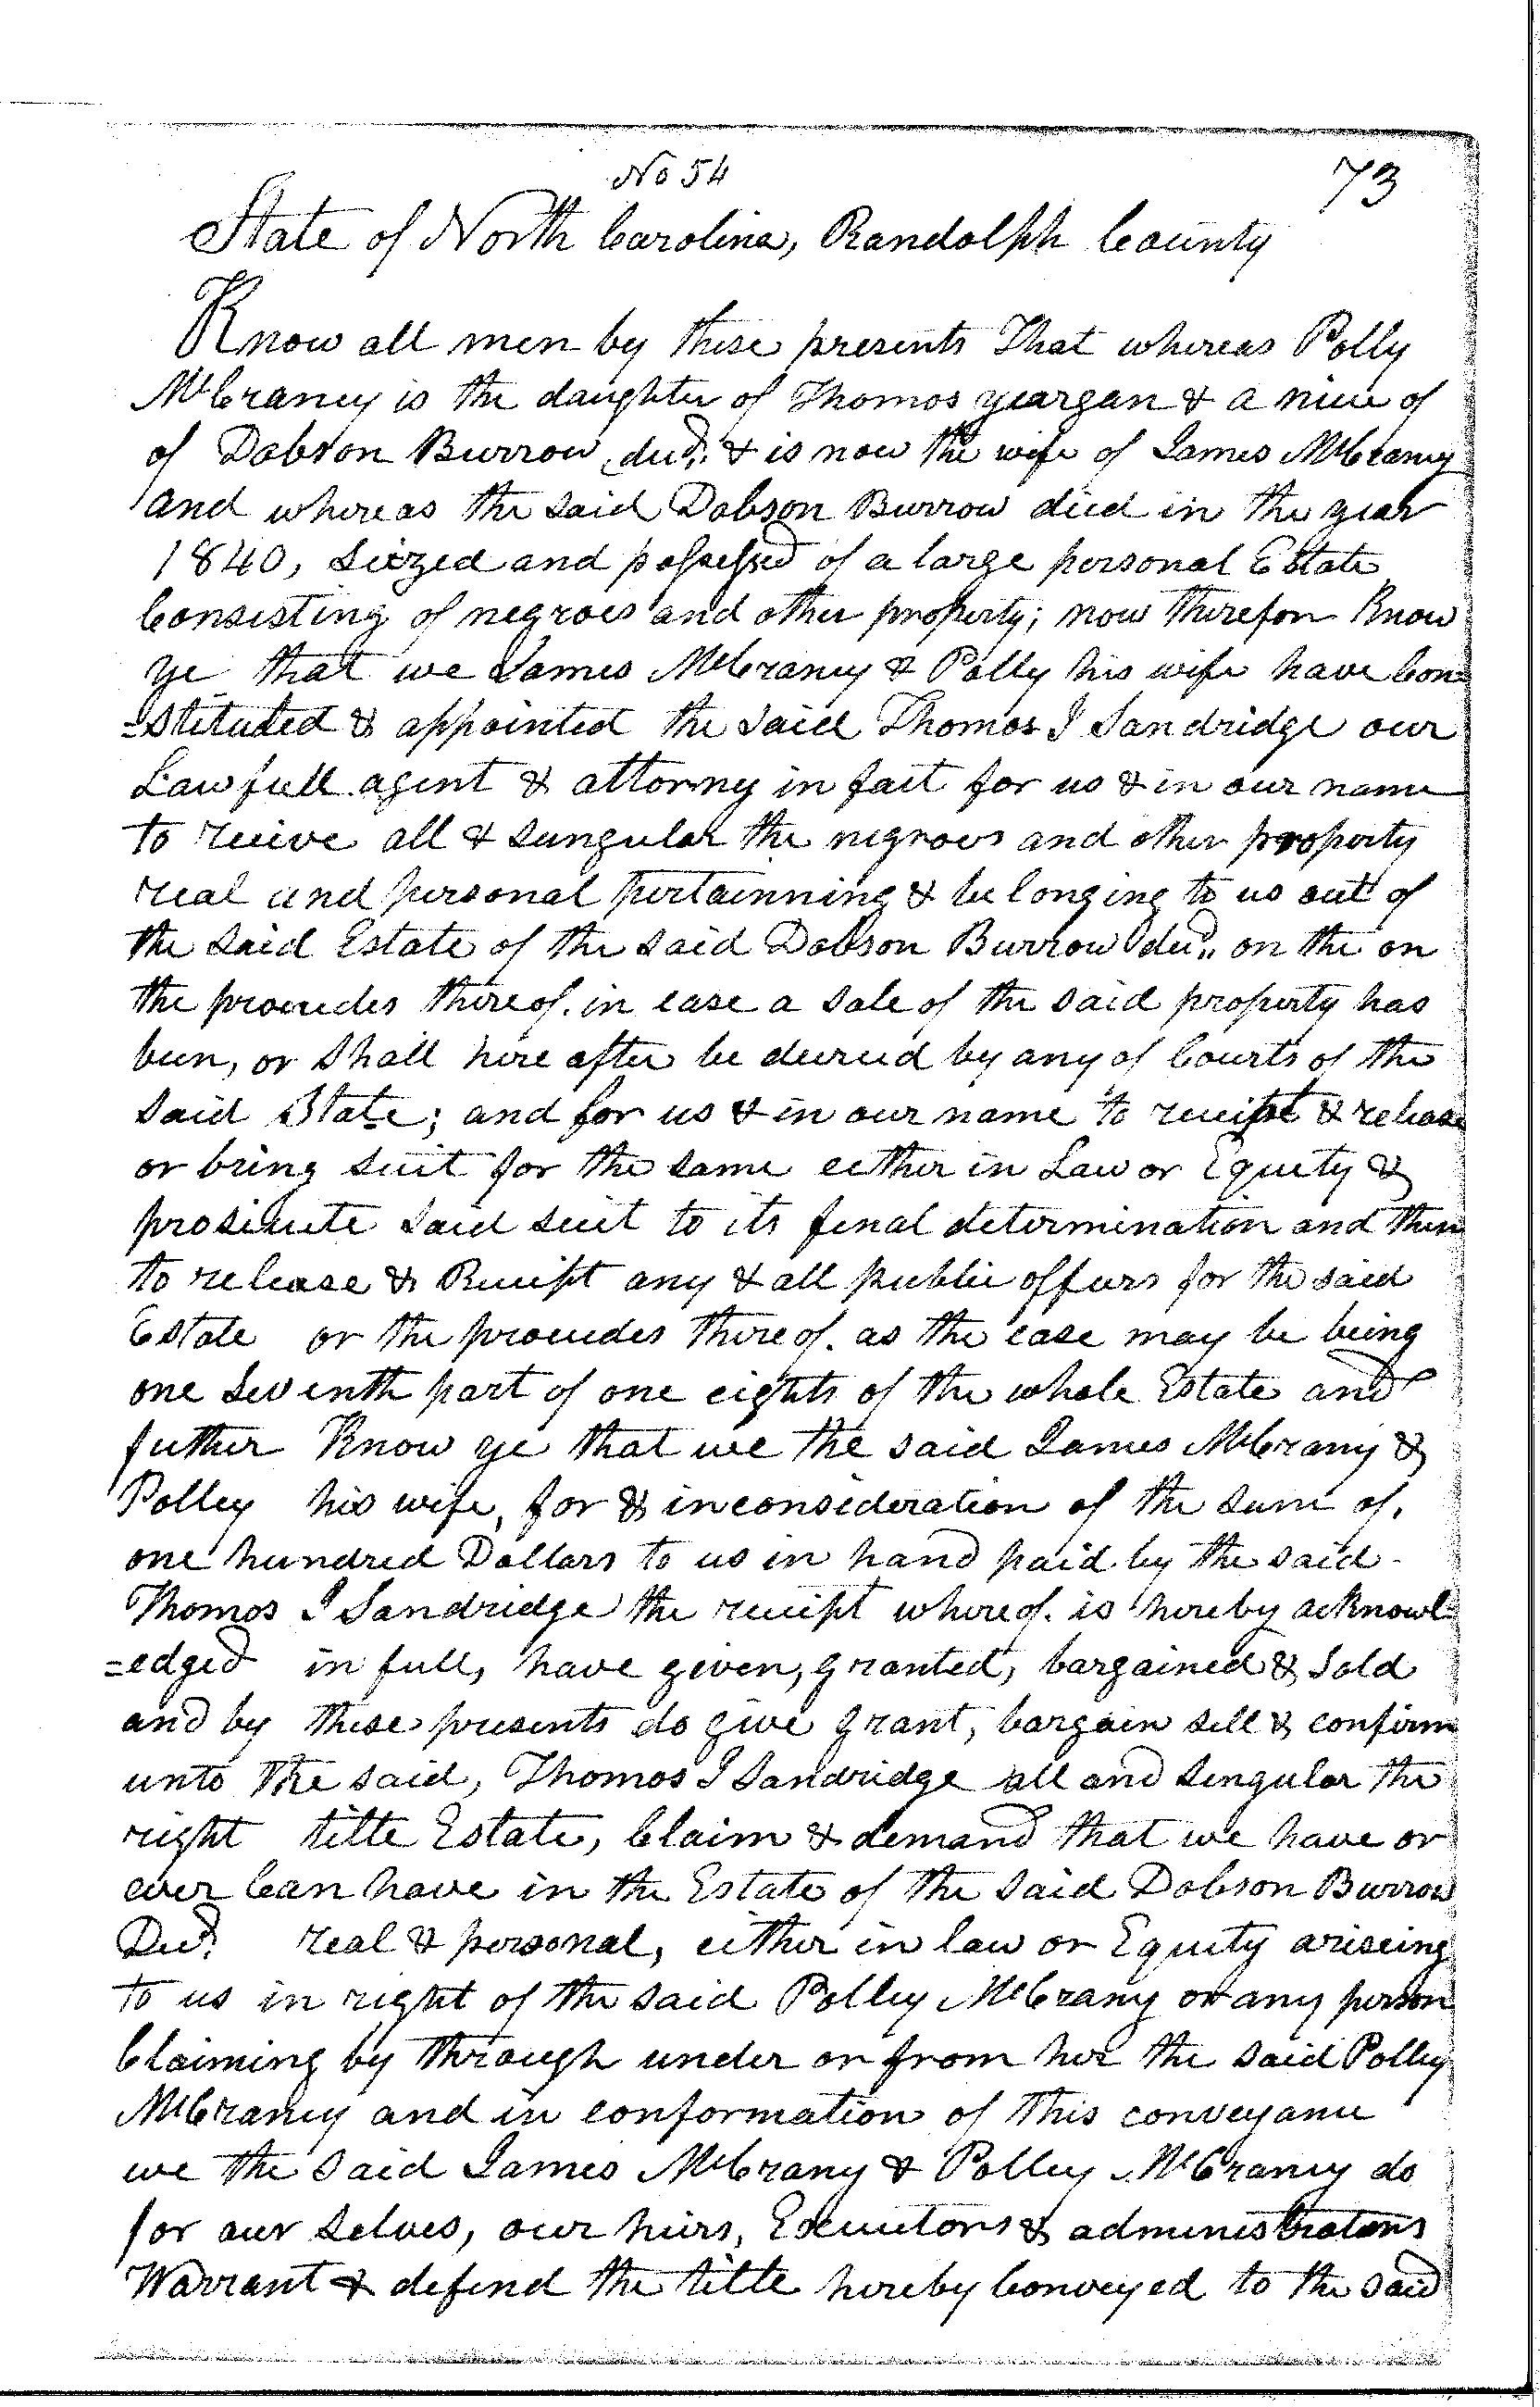 No 54
73
State of North Carolina, Randolph County
Know all men by these presents That whereas Polly
McCraney is the daughter of Thomos yeargan & a niece of
of Dobson Burrow decd. & is now the wife of James McCraney
and whereas the said Dobson Burrow died in the year
1840, Siezed and possessed of a large personal Estate
Consisting of negroes and other property; now therefore Know
ye that we James McCraney & Polly his wife have Con=
=stituted & appointed the said Thomos J Sandridge our
Lawfull agent & attorny in fact for us & in our name
to receive all & sungular the negroes and other property
real and personal pertainning & belonging to us out of
the said Estate of the said Dobson Burrow decd. on the on
the proceedes thereof. in case a sale of the said property has
been, or shall here after be decreed by any of Courts of the
said State; and for us & in our name to receipt & release
or bring suit for the same either in Law or Equity &
prosecute said suit to its final determination and then
to release & Receipt any & all public officers for the said
Estate or the proceedes thereof. as the case may be being
one seventh part of one eights of the whole Estate and
futher Know ye that we the said James McCrany &
Polley his wife, for & inconsideration of the sum of.
one hundred Dollars to us in hand paid by the said
Thomos J Sandridge the receipt whereof. is hereby acknowl=
=edged in full, have given, granted, bargained & sold
and by these presents do give grant, bargain sell & confirm
unto the said, Thomos J Sandridge all and singular the
right title Estate, Claim & demand that we have or
ever Can have in the Estate of the said Dobson Burrow
Decd. real & personal, either in law or Equity ariseing
to us in right of the said Polley McCrany or any person
Claiming by through under or from her the said Polley
McCraney and in conformation of this conveyance
we the said James McCrany & Polley McCraney do
for our selves, our heirs, Executors & administrators
Warrant & defend the title hereby Conveyed to the said